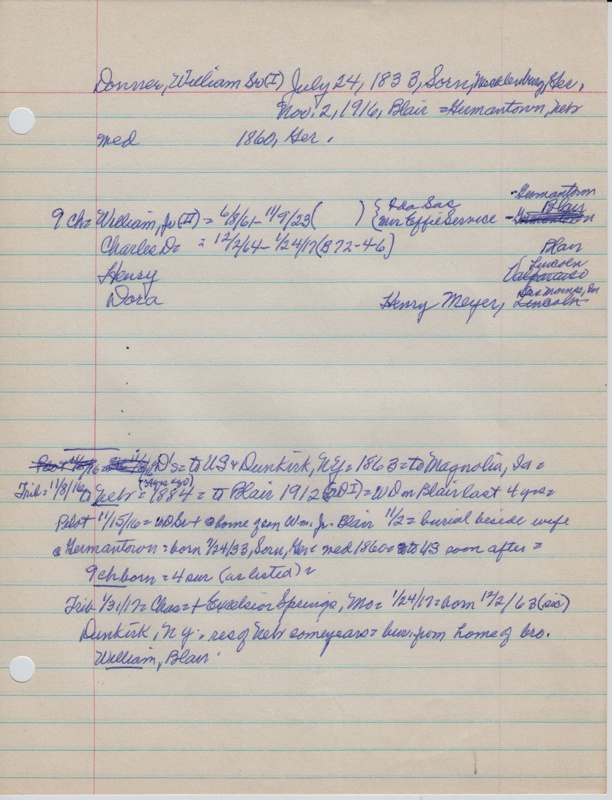 Donner, William Sr (I) July 24, 1833, Sorn, Mecklenburg, Ger.
Nov. 2, 1916, Blair = Germantown, Nebr
med 1860, Ger.
9 Ch = William, Jr (II) = 6/8/61 - 11/9/23 ( ) { Ida Sas - Germantown
{ Mrs Effie Service - Blair
Charles D. = 12/2/64 - 1/24/17 (B 72-46) Blair
Henry Lincoln Valparaiso
Dora Henry Meyer, Des Moines, Lincoln
D's = to US + Dunkirk, NY = 1863 = to Magnolia, Ia =
Trib = 11/8/16 to Nebr = 1884 = to Blair 1912 = WD on Blair last 4 yrs =
Pilot 11/15/16 = home of son Wm. Jr. Blair 11/2 = burial beside wife
@ Germantown = born 7/24/33, Sorn, Ger = med 1860 = to US soon after =
9 ch born = 4 sur (as listed) =
Trib 1/31/17 = Chas = + Excelsior Springs, Mo = 1/24/17 = born 12/2/63 (sic)
Dunkirk, N Y. res of Nebr some years = bur. from home of bro.
William, Blair.